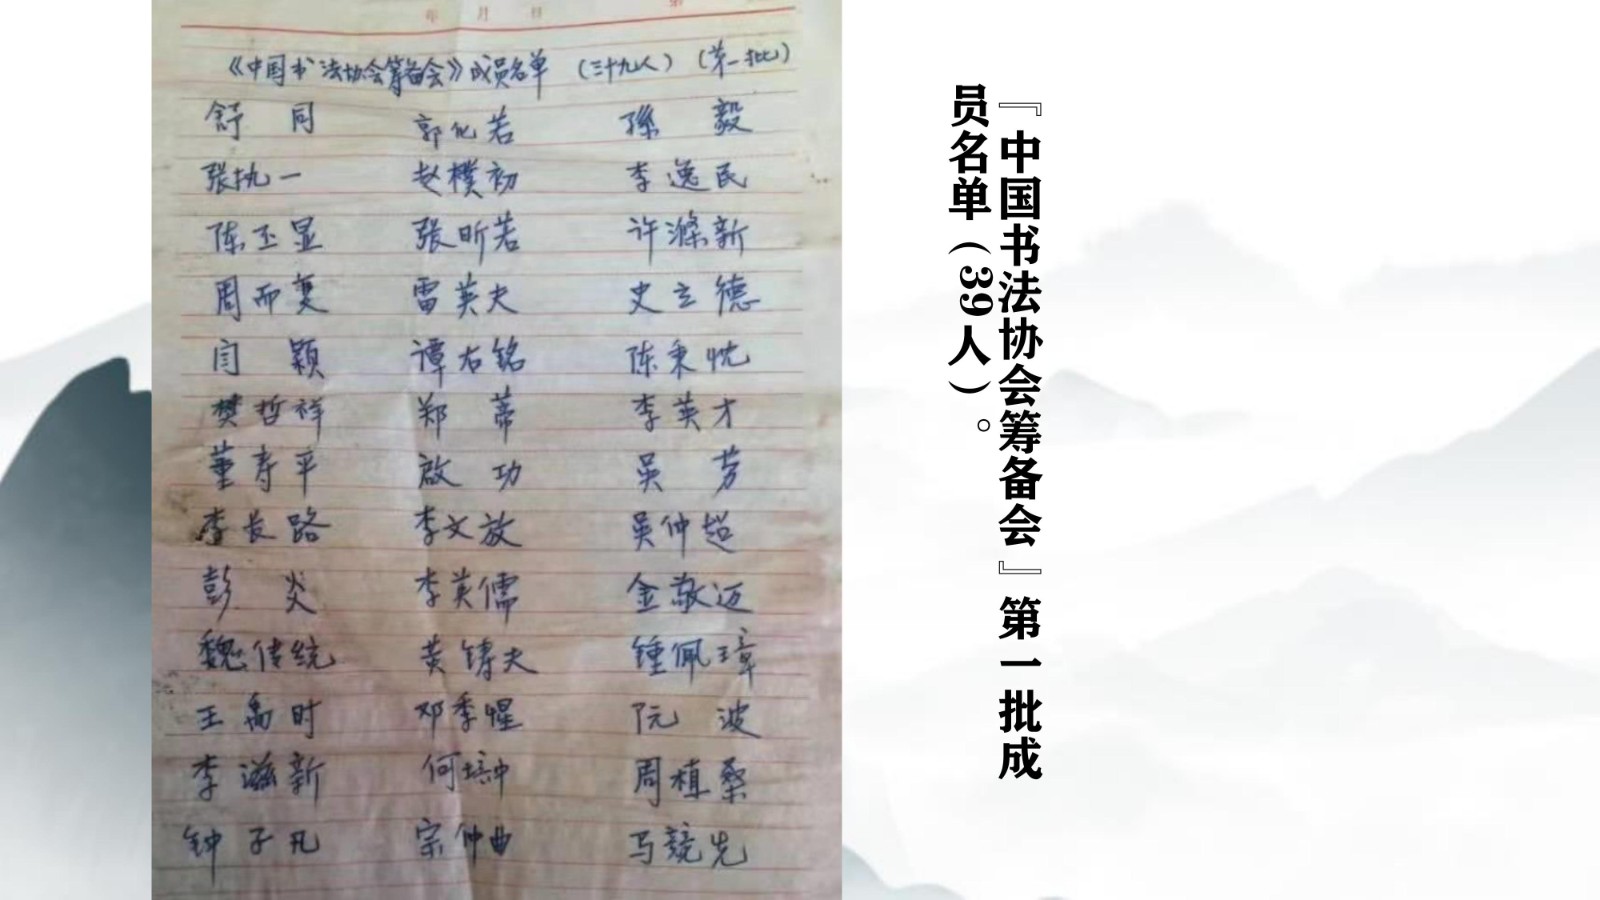 年 月 日 第
《中国书法协会筹备会》成员名单 （三十九人）（第一批）
舒同 郭化若 孫毅
张执一 赵樸初 李逸民
陈丕显 張昕若 许滌新
周而复 雷英夫 史立德
闫颖 谭右铭 陈秉忱
樊哲祥 郑蒂 李英才
董寿平 啟功 吴芳
李长路 李文放 吴仲超
彭炎 李英儒 金敬迈
魏传统 黄铸夫 锺佩璋
王禹时 邓季惺 阮波
李滋新 何培冲 周植桑
钟子凡 宗仲曲 马競先
『中国书法协会筹备会』第一批成
员名单（39人）。